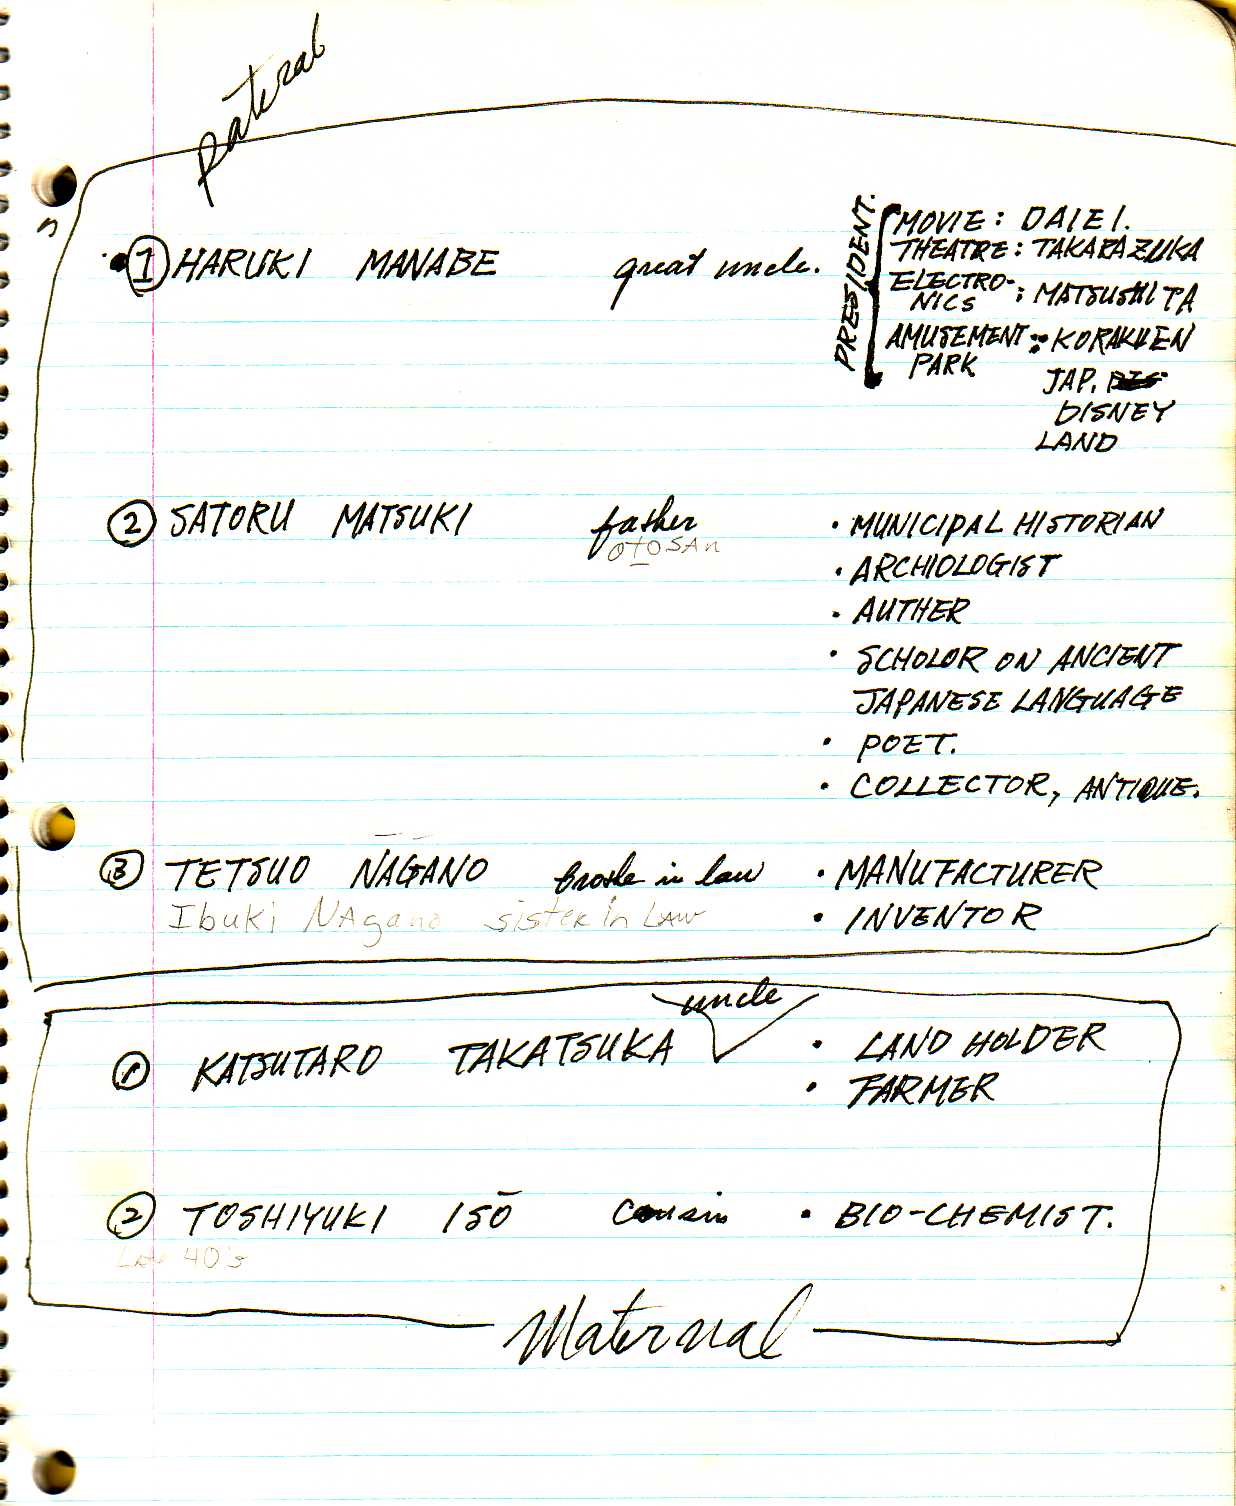 pateral
① HARUKI MANABE great uncle. PRESIDENT. MOVIE: DAIEI.
THEATRE: TAKARAZUKA
ELECTRO-NICS : MATSUSHITA
AMUSEMENT PARK : KORAKUEN
JAP.
DISNEY
LAND
② SATORU MATSUKI father • MUNICIPAL HISTORIAN
OTOSAn
• ARCHIOLOGIST
• AUTHER
• SCHOLOR ON ANCIENT
JAPANESE LANGUAGE
• POET.
• COLLECTOR, ANTIQUE.
③ TETSUO NAGANO brothe in law • MANUFACTURER
Ibuki NAgano sister in LAW • INVENTOR
uncle
① KATSUTARO TAKATSUKA • LAND HOLDER
• FARMER
② TOSHIYUKI ISŌ cousin • BIO-CHEMIST.
40's
Maternal